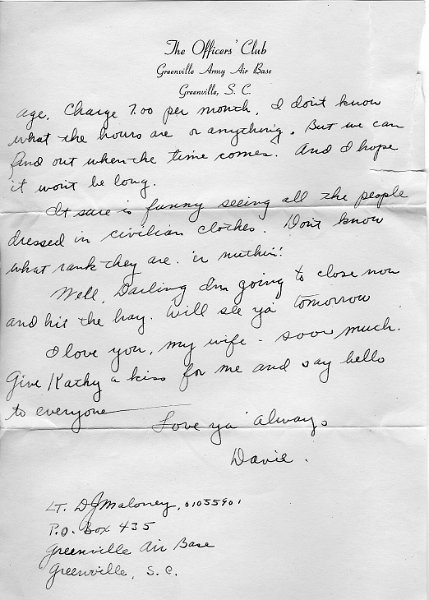 The Officers' Club
Greenville Army Air Base
Greenville, S. C.
age. Charge 7.00 per month. I don't know
what the hours are or anything. But we can
find out when the time comes. And I hope
it won't be long.
It sure is funny seeing all the people
dressed in civilian clothes. Don't know
what rank they are 'er nuthin'!
Well, Darling I'm going to close now
and hit the hay. Will see ya' tomorrow
I love you, my wife - sooo much.
Give Kathy a kiss for me and say hello
to everyone
Love ya' always
Davie.
LT. DJ Maloney, 01055901
P.O. Box 435
Greenville Air Base
Greenville, S.C.